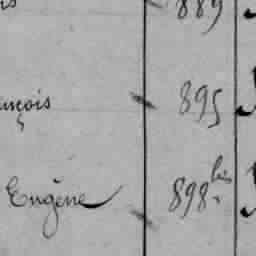 is 889
ançois 895
Eugène 898 bis